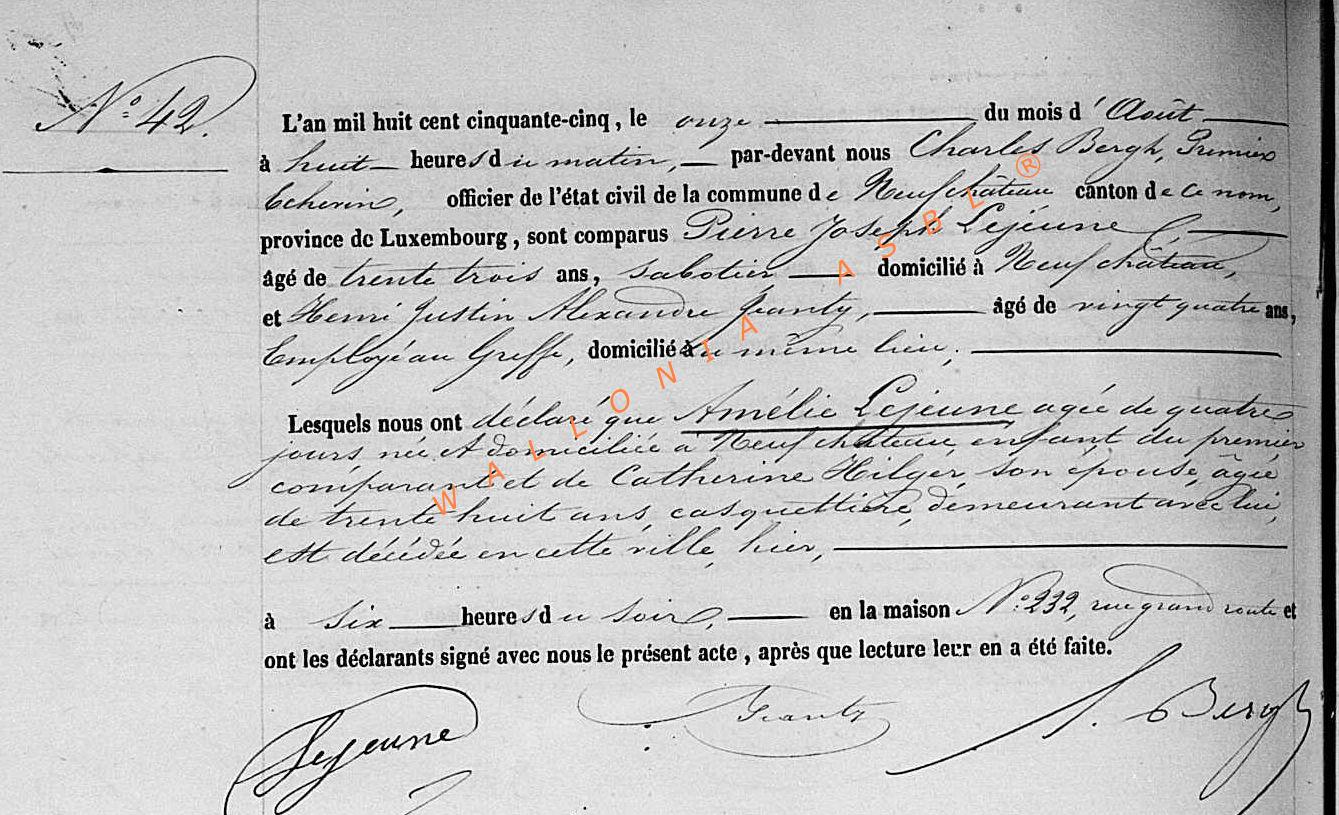 N° 42.
L'an mil huit cent cinquante-cinq, le onze du mois d'Août
à huit heures du matin, par-devant nous Charles Bergh, Premier
Echevin, officier de l'état civil de la commune de Neufchâteau canton de ce nom,
province de Luxembourg, sont comparus Pierre Joseph Lejeune
âgé de trente trois ans, sabotier domicilié à Neufchâteau,
et Henri Justin Alexandre Jeanty, âgé de vingt quatre ans,
Employé au Greffe, domicilié au même lieu,
Lesquels nous ont déclaré que Amélie Lejeune agée de quatre
jours, née et domiciliée à Neufchâteau, enfant du premier
comparant et de Catherine Hilger, son épouse, âgée
de trente huit ans, casquettière, demeurant avec lui,
est décédée en cette ville, hier,
à six heures du soir, en la maison N° 232, rue grand route et
ont les déclarants signé avec nous le présent acte, après que lecture leur en a été faite.
Lejeune Jeanty Bergh
WALLONIA ASBL ®